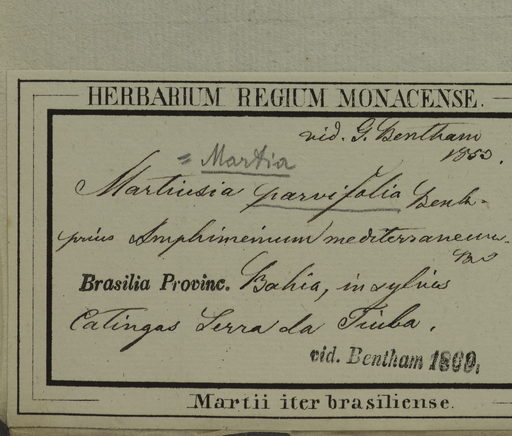 HERBARIUM REGIUM MONACENSE.
vid. G. Bentham
1850.
= Martia
Martiusia parvifolia Benth.
prius Amphimenium mediterraneum
Brasilia Provinc. Bahia, in sylvis
Catingas Serra da Tiuba.
vid. Bentham 1869.
Martii iter brasiliense.